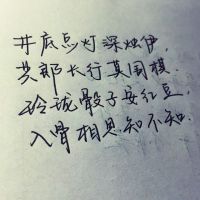 井底点灯深烛伊,
共郎长行莫围棋.
玲珑骰子安红豆,
入骨相思知不知.